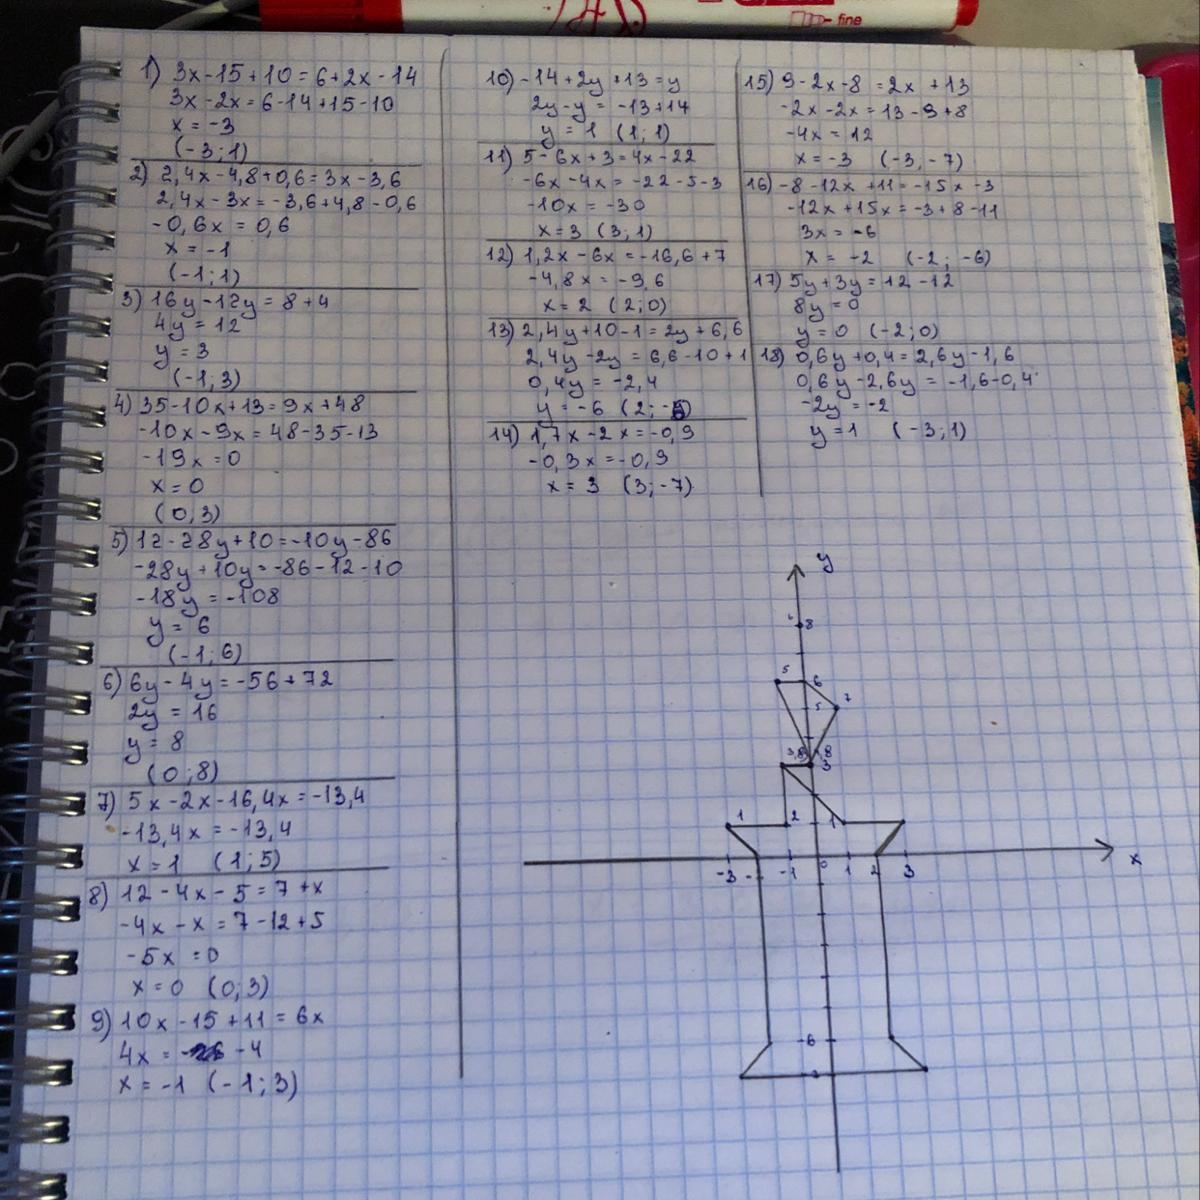 fine
1) 3x-15+10=6+2x-14
3x-2x=6-14+15-10
x=-3
(-3;1)
2) 2,4x-4,8+0,6=3x-3,6
2,4x-3x=-3,6+4,8-0,6
-0,6x=0,6
x=-1
(-1;1)
3) 16y-12y=8+4
4y=12
y=3
(-1;3)
4) 35-10x+13=9x+48
-10x-9x=48-35-13
-19x=0
x=0
(0,3)
5) 12-28y+10=-10y-86
-28y+10y=-86-12-10
-18y=-108
y=6
(-1;6)
6) 6y-4y=-56+72
2y=16
y=8
(0;8)
7) 5x-2x-16,4x=-13,4
-13,4x=-13,4
x=1 (1;5)
8) 12-4x-5=7+x
-4x-x=7-12+5
-5x=0
x=0 (0;3)
9) 10x-15+11=6x
4x=-4
x=-1 (-1;3)
10) -14+2y+13=y
2y-y=-13+14
y=1 (1;1)
11) 5-6x+3=4x-22
-6x-4x=-22-5-3
-10x=-30
x=3 (3;1)
12) 1,2x-6x=-16,6+7
-4,8x=-9,6
x=2 (2;0)
13) 2,4y+10-1=2y+6,6
2,4y-2y=6,6-10+1
0,4y=-2,4
y=-6 (2;-6)
14) 1,7x-2x=-0,9
-0,3x=-0,9
x=3 (3;-7)
15) 9-2x-8=2x+13
-2x-2x=13-9+8
-4x=12
x=-3 (-3,-7)
16) -8-12x+11=-15x-3
-12x+15x=-3+8-11
3x=-6
x=-2 (-2;-6)
17) 5y+3y=12-12
8y=0
y=0 (-2;0)
18) 0,6y+0,4=2,6y-1,6
0,6y-2,6y=-1,6-0,4
-2y=-2
y=1 (-3;1)
y
8
5 6
5 7
3
1 2 1
-3 -1 0 1 2 3 x
-6